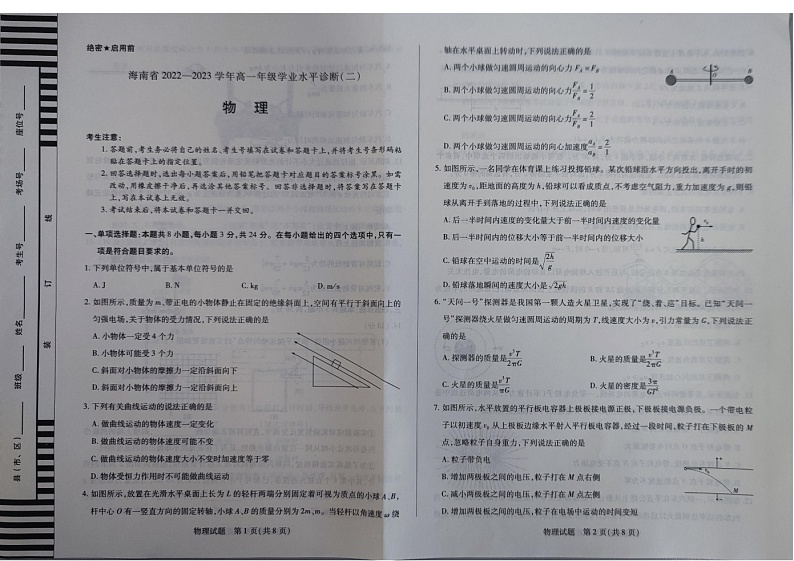 绝密★启用前
海南省 2022—2023 学年高一年级学业水平诊断(二)
物 理
考生注意:
1. 答题前,考生务必将自己的姓名、考生号填写在试卷和答题卡上,并将考生号条形码粘
贴在答题卡上的指定位置。
2. 回答选择题时,选出每小题答案后,用铅笔把答题卡对应题目的答案标号涂黑。如需
改动,用橡皮擦干净后,再选涂其他答案标号。回答非选择题时,将答案写在答题卡
上,写在本试卷上无效。
3. 考试结束后,将本试卷和答题卡一并交回。
一、单项选择题:本题共 8 小题,每小题 3 分,共 24 分。在每小题给出的四个选项中,只有一
项是符合题目要求的。
1. 下列单位符号中,属于基本单位符号的是
A. J B. N C. kg D. m/s
2. 如图所示,质量为 m、带正电的小物体静止在固定的绝缘斜面上,空间有平行于斜面向上的
匀强电场,关于物体的受力情况,下列说法正确的是
A. 小物体一定受 4 个力
B. 小物体可能受 3 个力
C. 斜面对小物体的摩擦力一定沿斜面向下
D. 斜面对小物体的摩擦力一定沿斜面向上
3. 下列有关曲线运动的说法正确的是
A. 做曲线运动的物体速度一定变化
B. 做曲线运动的物体速度可能不变
C. 做曲线运动的物体速度大小不变时加速度等于零
D. 物体受恒力作用时不可能做曲线运动
4. 如图所示,放置在光滑水平桌面上长为 L 的轻杆两端分别固定着可视为质点的小球 A、B,
杆中心 O 有一竖直方向的固定转轴,小球 A、B 的质量分别为 2m、m。当轻杆以角速度 ω 绕
物理试题 第 1 页(共 8 页)
轴在水平桌面上转动时,下列说法正确的是
A. 两个小球做匀速圆周运动的向心力 F_A = F_B
B. 两个小球做匀速圆周运动的向心力 F_A/F_B = 1/2
C. 两个小球做匀速圆周运动的向心力 F_A/F_B = 2/1
D. 两个小球做匀速圆周运动的向心加速度 a_A/a_B = 2/1
A O B
5. 如图所示,一名同学在体育课上练习投掷铅球。某次铅球沿水平方向投出,离开手时的初
速度为 v₀,距地面的高度为 h,铅球可以看成质点,不考虑空气阻力,重力加速度为 g。则铅
球从离开手到落地的过程中,下列说法正确的是
A. 后一半时间内速度的变化量大于前一半时间内速度的变化量
B. 后一半时间内的位移大小等于前一半时间内的位移大小
C. 铅球在空中运动的时间是 √(2h/g)
D. 铅球落地瞬间的速度大小是 √2gh
v₀
h
6. “天问一号”探测器是我国第一颗人造火星卫星,实现了“绕、着、巡”目标。已知“天问一
号”探测器绕火星做匀速圆周运动的周期为 T,线速度大小为 v,引力常量为 G,下列说法正
确的是
A. 探测器的质量是 v³T/2πG B. 火星的质量是 v³T/2πG
C. 火星的质量是 v³T/πG D. 火星的密度是 3π/GT²
7. 如图所示,水平放置的平行板电容器上极板接电源正极,下极板接电源负极。一个带电粒
子以初速度 v₀ 从上极板边缘水平射入平行板电容器,经过一段时间,粒子打在下极板的 M
点,忽略粒子自身重力,下列说法正确的是
A. 粒子带负电
B. 增加两极板之间的电压,粒子打在 M 点右侧
C. 减小两极板之间的电压,粒子打在 M 点左侧
D. 增加两极板之间的电压,粒子在电场中运动的时间变短
v₀
M
物理试题 第 2 页(共 8 页)
县(市、区)
班级
姓名
考生号
考场号
座位号
装
订
线